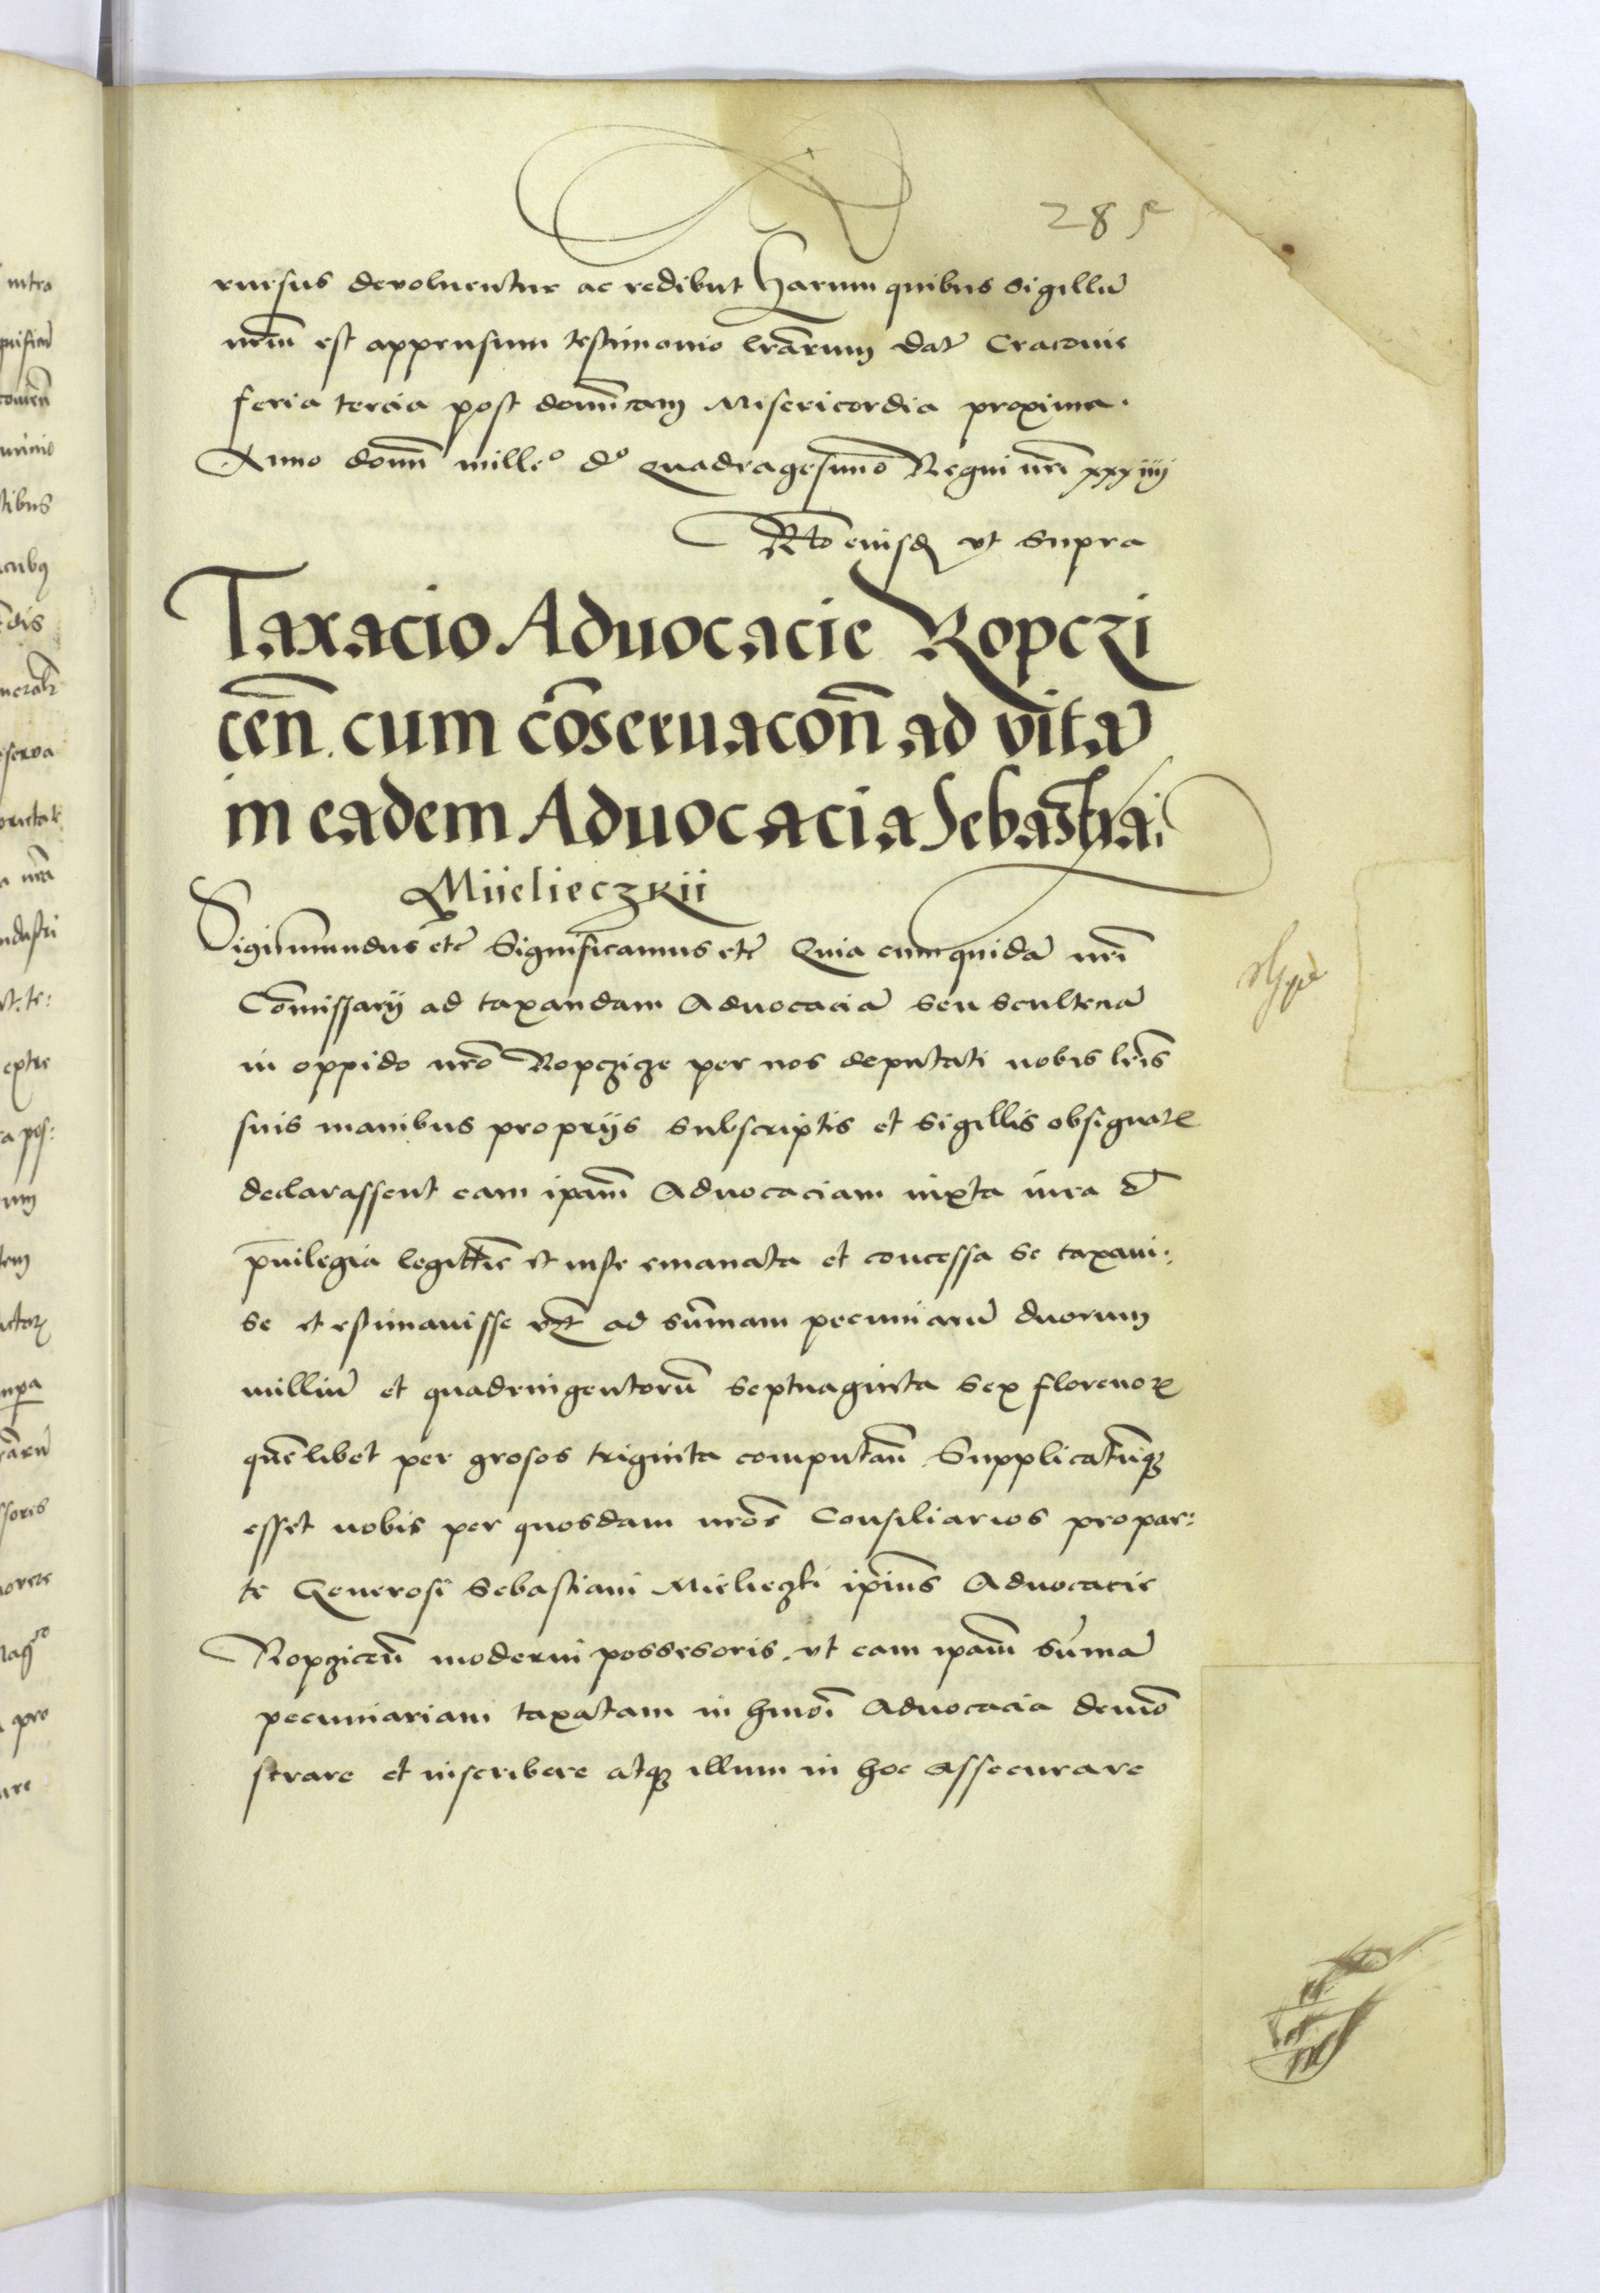 285
rursus devoluentur ac redibunt Harum quibus sigillū
nrm̄ est appensum testimonio lrārum Dat̄ Cracovie
feria tercia post domīcam Misericordia proxima.
Anno domī milleº dº quadragesimo Regni nrī xxxiiij
Rtō eiusdē vt supra
Taxacio Aduocacie Ropczi
cen̄. cum cōseruacon̄ ad vitā
in eadem Aduocacia Sebastiai
Miielieczkii
Sigismundus etc̄ Significamus etc̄ Quia cum quidā nrī
Cōmissarij ad taxandam Aduocaciā seu sculteciā
in oppido nrō Ropczicze per nos deputati nobis lrīs
suis manibus proprijs subscriptis et sigillis obsignatꝭ
declarassent eam ipam̄ Aduocaciam iuxta iura et
priuilegia legittīe et iuste emanata et concessa se taxaui:
se et estimauisse ad sūmam pecuniariā duorum
milliū et quadringentorū septuaginta sex florenoꝝ
quēlibet per grosos triginta computan̄ Supplicatūqꝫ
esset nobis per quosdam nrōs Consiliarios pro par:
te Generosi Sebastiani Mielieczki ipīus Aduocacie
Ropczicen̄ moderni possesoris. vt eam ipam̄ sūmā
pecuniariam taxatam in hmōi Aduocacia demō
strare et inscribere atqꝫ illum in hoc assecurare